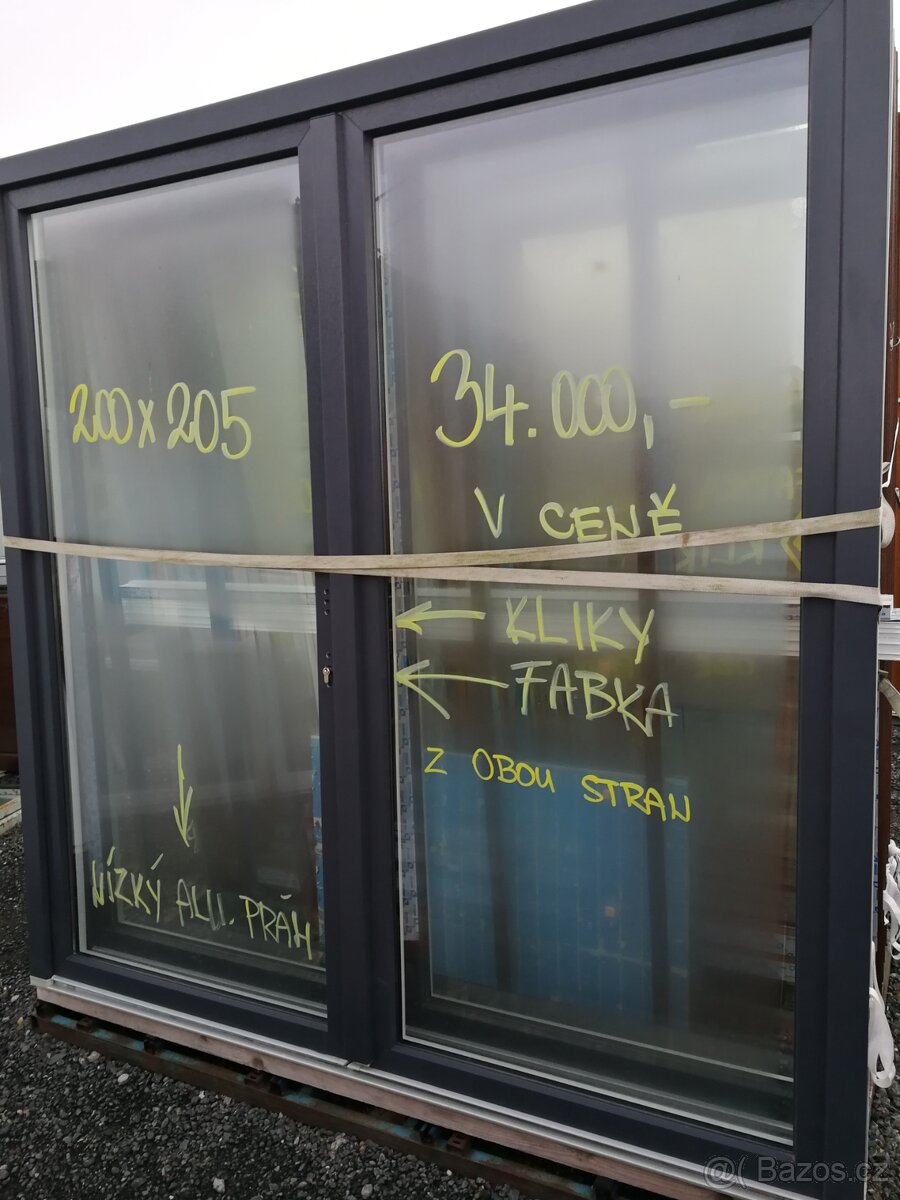 200 x 205
34.000,-
V CENĚ
KLIKY
FABKA
Z OBOU STRAN
NÍZKÝ ALU. PRÁH
@( Bazos.cz